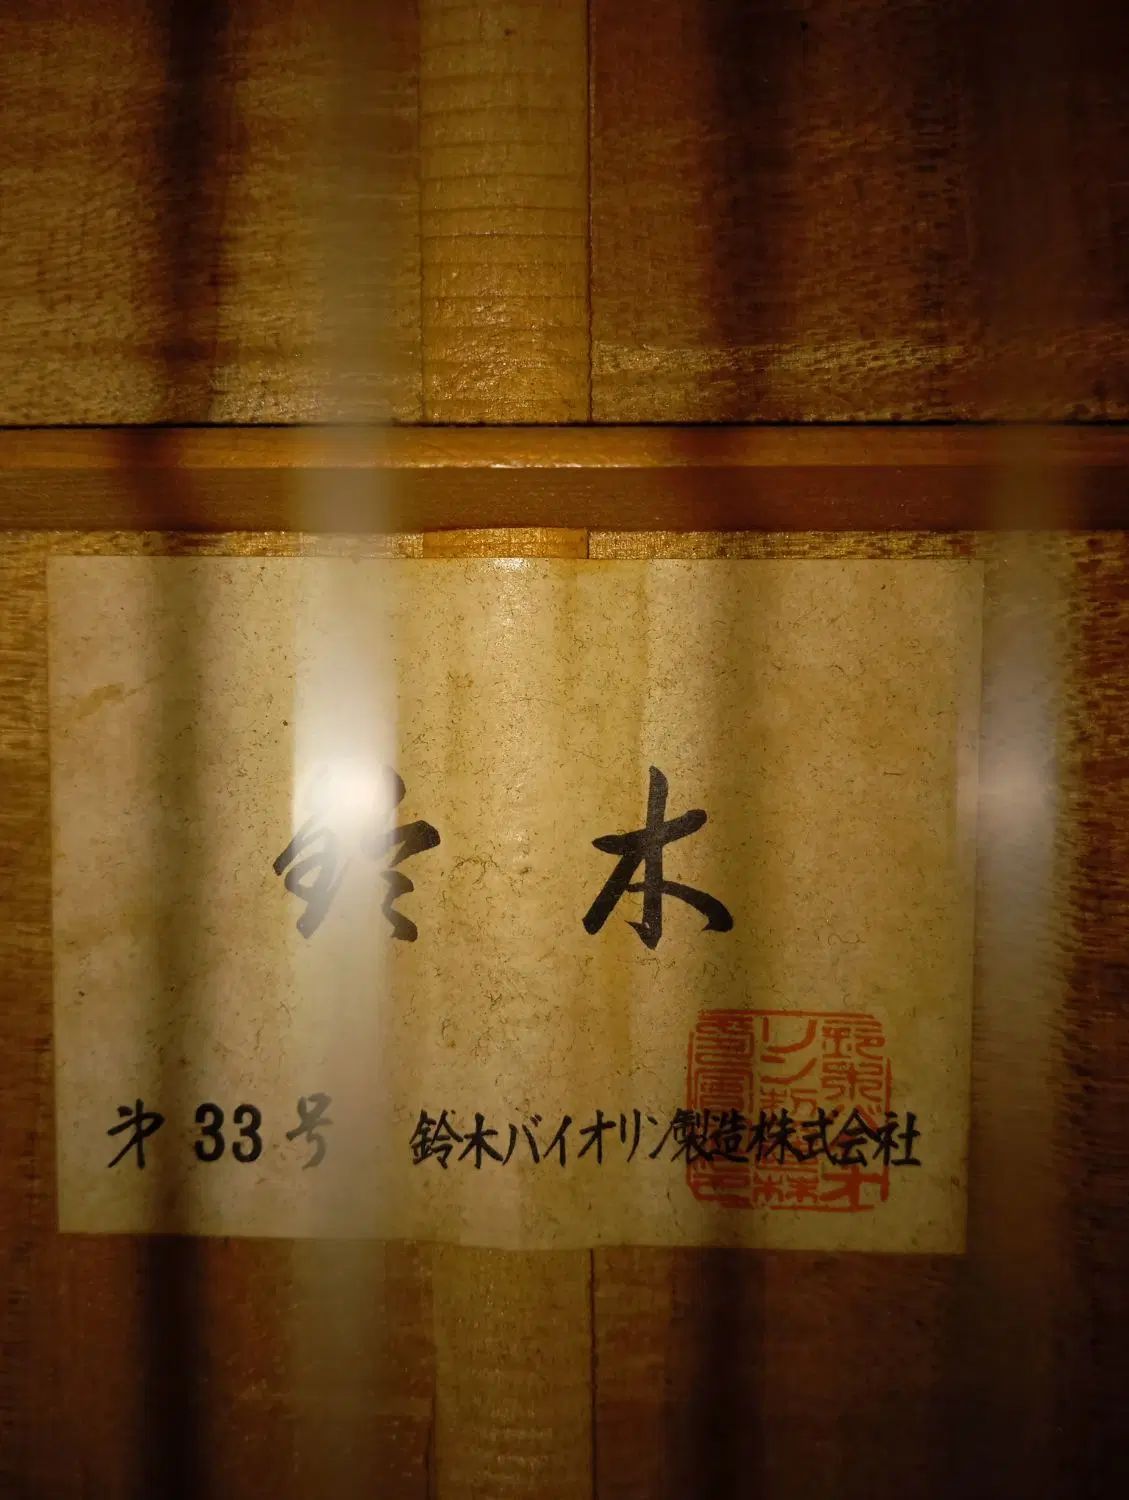 鈴木
第33号 鈴木バイオリン製造株式会社